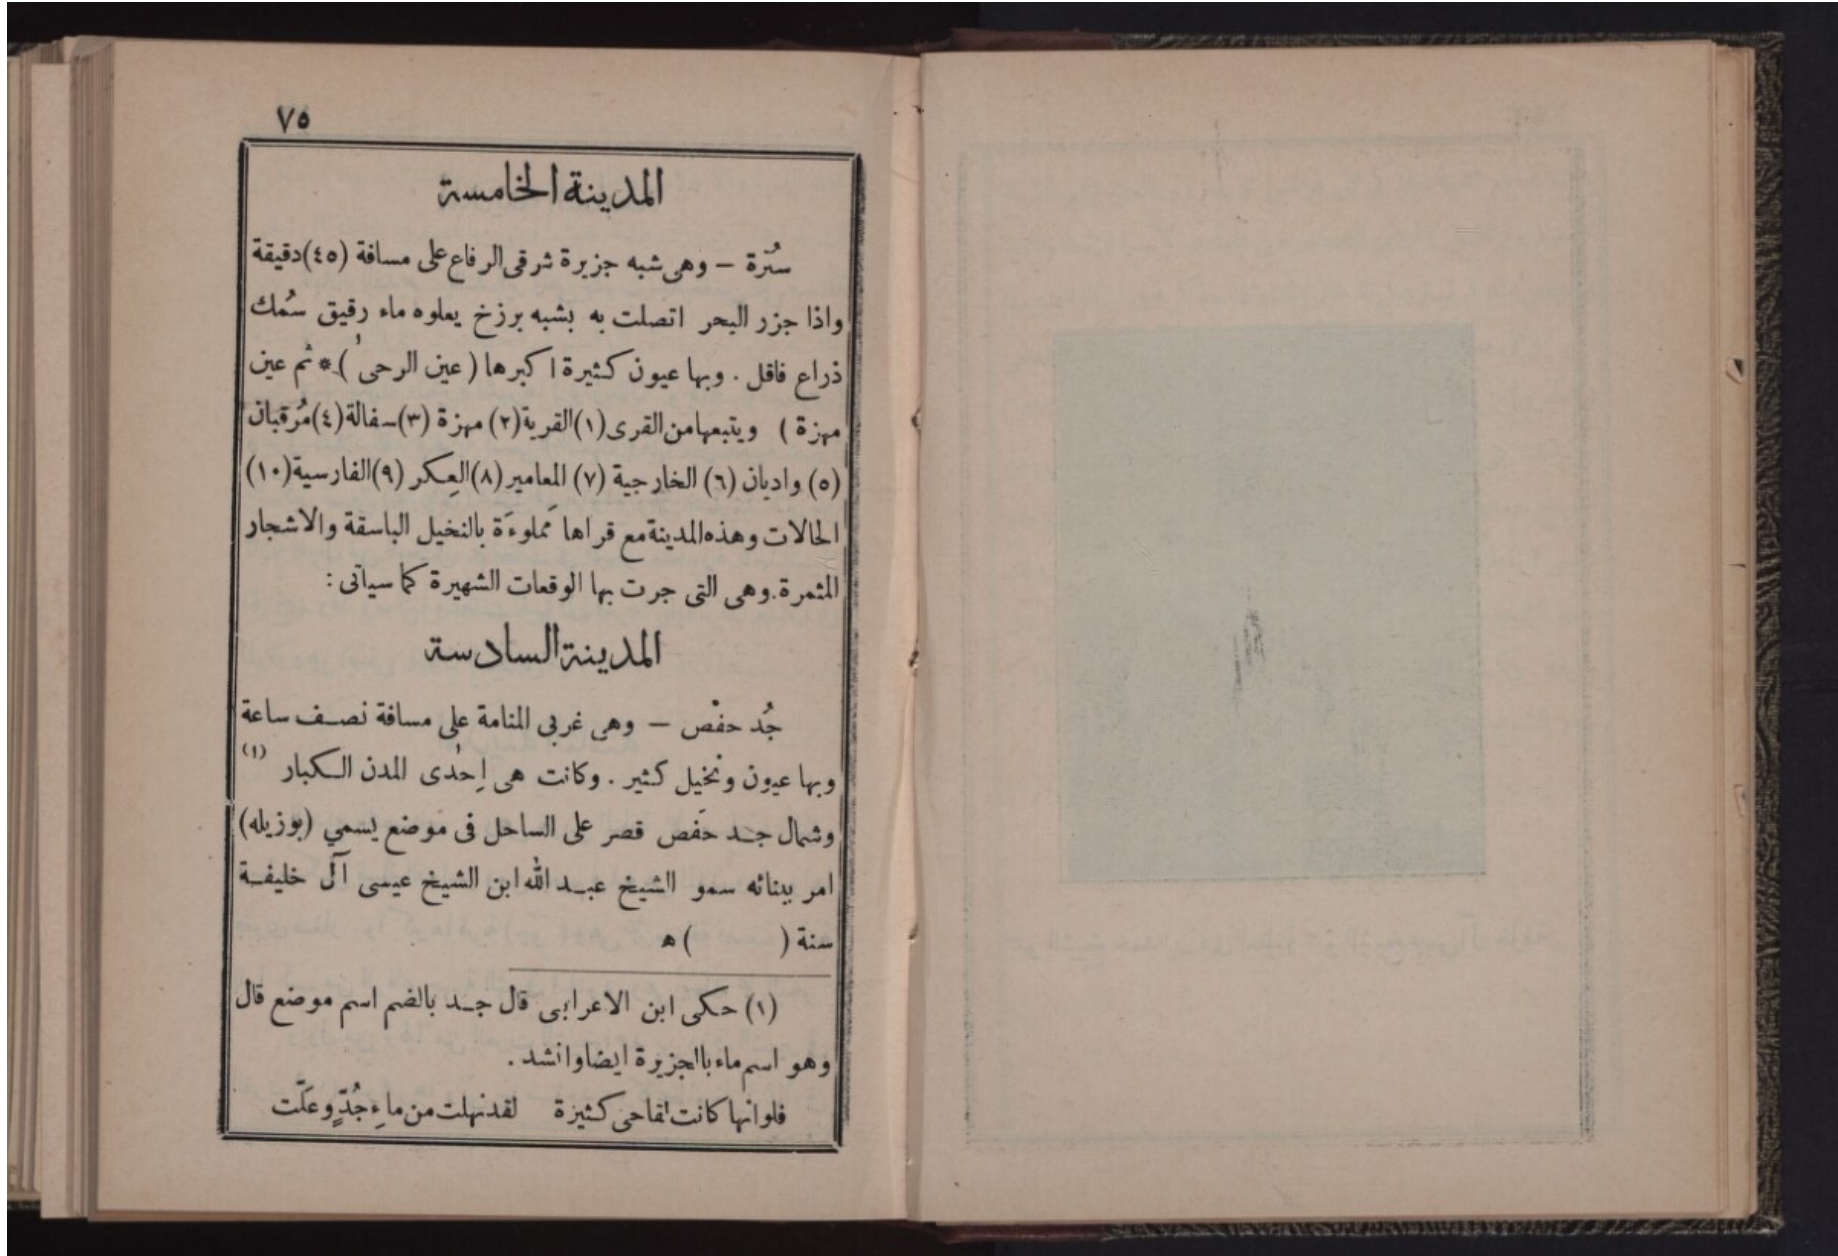 ٧٥
المدينة الخامسة
سُترة — وهى شبه جزيرة شرقى الرفاع على مسافة (٤٥) دقيقة
واذا جزر البحر اتصلت به بشبه برزخ يعلوه ماء رقيق سُمك
ذراع فاقل . وبها عيون كثيرة اكبرها ( عين الرحى ) * ثم عين
مهزة ) ويتبعها من القرى (١) القرية (٢) مهزة (٣) سفالة (٤) مُرقبان
(٥) واديان (٦) الخارجية (٧) المعامير (٨) العِكر (٩) الفارسية (١٠)
الحالات وهذه المدينة مع قراها مَملوءَة بالنخيل الباسقة والاشجار
المثمرة . وهى التى جرت بها الوقعات الشهيرة كما سياتى :
المدينة السادسة
جُد حفْص — وهى غربى المنامة على مسافة نصف ساعة
وبها عيون ونخيل كثير . وكانت هى اِحدى المدن الكبار (١)
وشمال جد حَفص قصر على الساحل فى موضع يسمي (بوزيله)
امر ببنائه سمو الشيخ عبد الله ابن الشيخ عيسى آل خليفة
سنة ( ) ه
(١) حكى ابن الاعرابى قال جد بالضم اسم موضع قال
وهو اسم ماء باالجزيرة ايضا وانشد .
فلو انها كانت لقاحى كثيرة لقد نهلت من ماءِ جُدٍّ وعَلّت